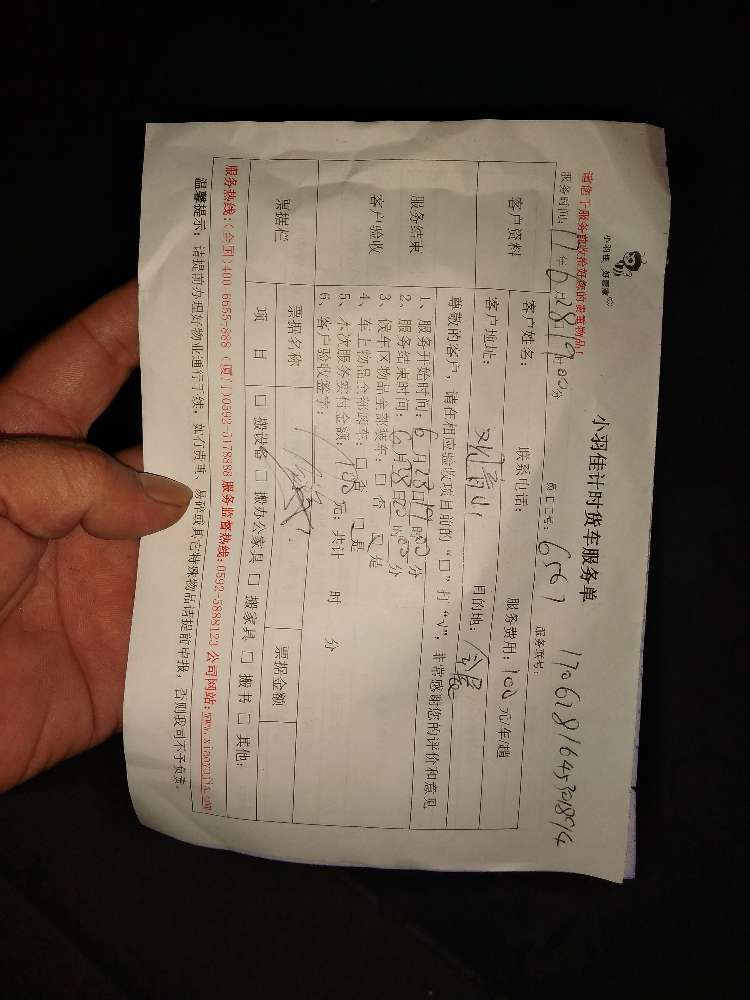 小羽佳 好管家
小羽佳计时货车服务单
请您于服务前收拾好您的贵重物品!
员工工号: 6567 服务账号: 1706281645301894
服务时间: 17年6月28 19时00分
客户资料
客户姓名: 联系电话: 服务费用: 100元/车/趟
客户地址: 目的地:
服务结束
客户验收
尊敬的客户, 请在相应验收项目前的“□”打“√”, 非常感谢您的评价和意见
1、服务开始时间: 6月28日19时00分
2、服务结束时间: 6月28日20时00分
3、候车区物品全部装车: □否 □是
4、车上物品全部卸车: □否 □是
5、本次服务实付金额: 100元; 共计 时 分
6、客户验收签字:
票据栏
票据名称 票据金额
项 目 □搬设备 □搬办公家具 □搬家具 □搬书 □其他:
服务热线:(全国)400-6655-888 (厦门)0592-5178888 服务监督热线:0592-5888123 公司网站:www.xiaoyujia.com
温馨提示: 请提前办理好物业通行手续, 如有贵重、易碎或其它特殊物品请提前申报, 否则我司不予负责.